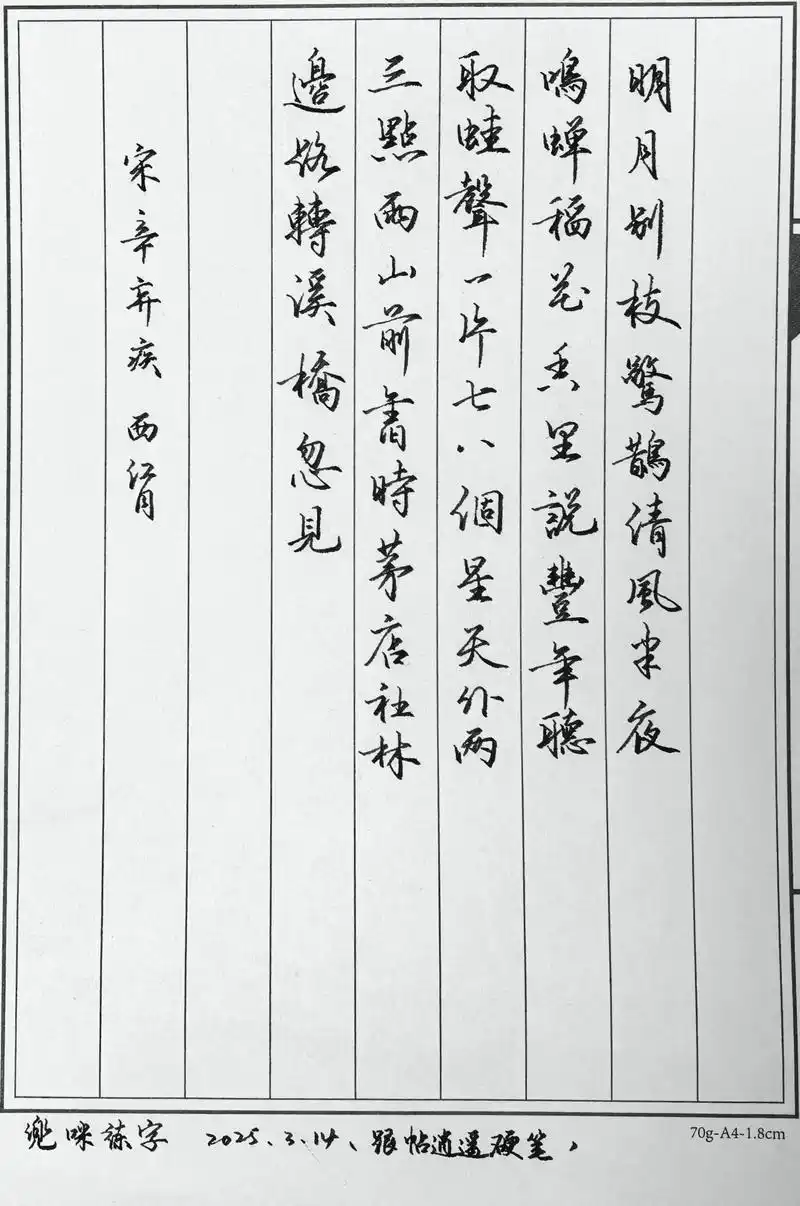 明月别枝驚鵲清風半夜
鳴蟬稲花香里説豐年聽
取蛙聲一片七八個星天外两
三點雨山前舊時茅店社林
邊路轉溪橋忽見
宋辛弃疾 西江月
兜咪練字 2025.3.14、跟帖逍遥硬笔,
70g-A4-1.8cm